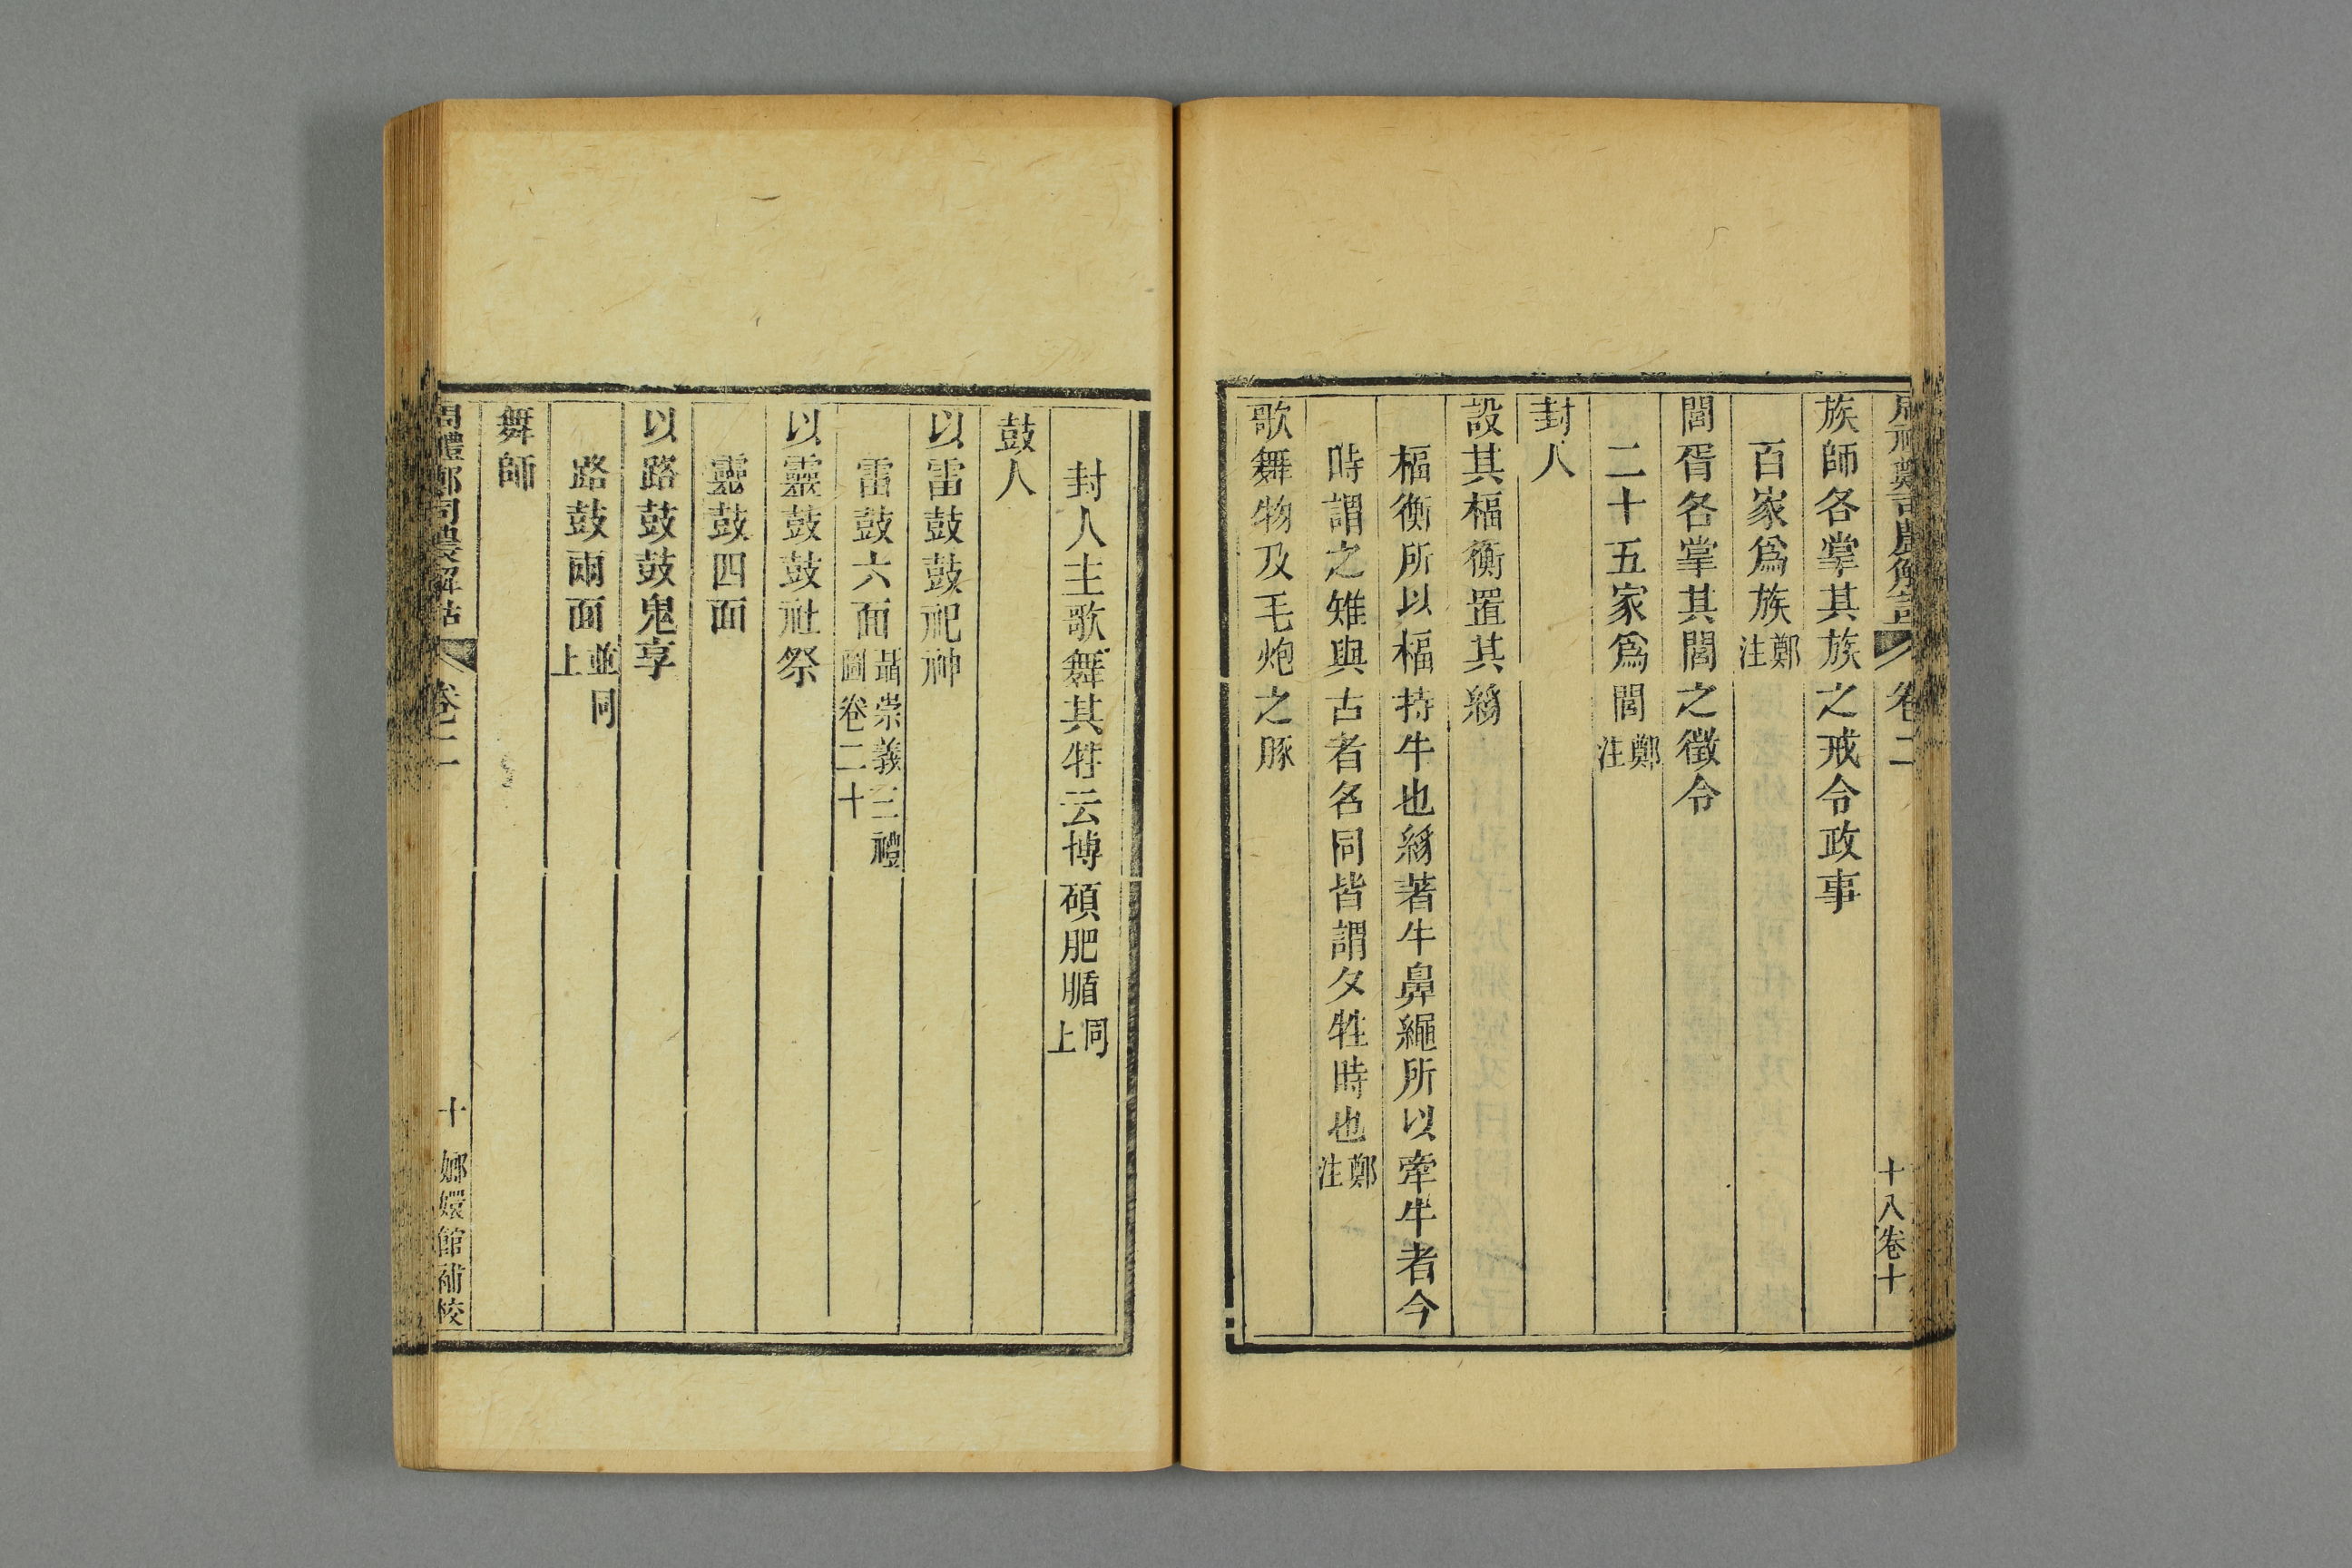 周禮鄭司農解詁 卷二 十八卷十
族師各掌其族之戒令政事
百家爲族鄭注
閭胥各掌其閭之徵令
二十五家爲閭鄭注
封人
設其楅衡置其絼
楅衡所以楅持牛也絼著牛鼻繩所以牽牛者今
時謂之雉與古者名同皆謂夕牲時也鄭注
歌舞物及毛炮之豚
封人主歌舞其牲云博碩肥腯同上
鼓人
以雷鼓鼓祀神
雷鼓六面聶崇義三禮圖卷二十
以靈鼓鼓社祭
靈鼓四面
以路鼓鼓鬼享
路鼓兩面並同上
舞師
周禮鄭司農解詁 卷二 十 嫏嬛館補校